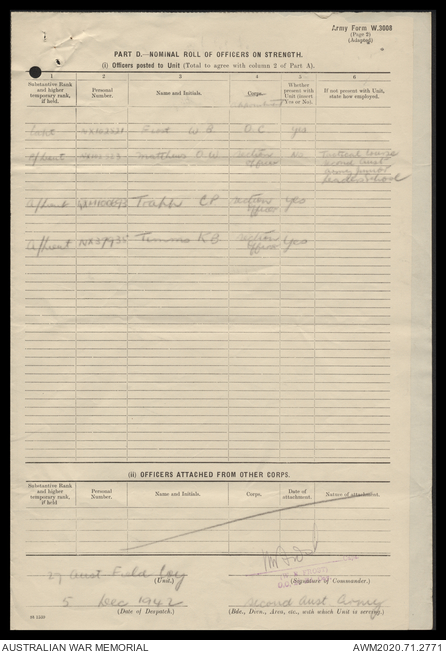 Army Form W.3008
(Page 2)
(Adapted)
PART D.—NOMINAL ROLL OF OFFICERS ON STRENGTH.
(i) Officers posted to Unit (Total to agree with column 2 of Part A).
1 2 3 4 5 6
Substantive Rank and higher temporary rank, if held. Personal Number. Name and Initials. Corps. Whether present with Unit (insert Yes or No). If not present with Unit, state how employed.
Capt W B O.C. yes
A/Lieut Matthews O W section officer No Tactical Course second Aust army junior
A/Lieut Trapp C P section officer yes
A/Lieut Timms K B section officer yes
(ii) OFFICERS ATTACHED FROM OTHER CORPS.
Substantive Rank and higher temporary rank, if held Personal Number. Name and Initials. Corps. Date of attachment. Nature of attachment.
29 Aust Field Coy
(Unit.) (Signature of Commander.)
5 Dec 1942 second Aust Army
(Date of Despatch.) (Bde., Divn., Area, etc., with which Unit is serving.)
AUSTRALIAN WAR MEMORIAL AWM2020.71.2771